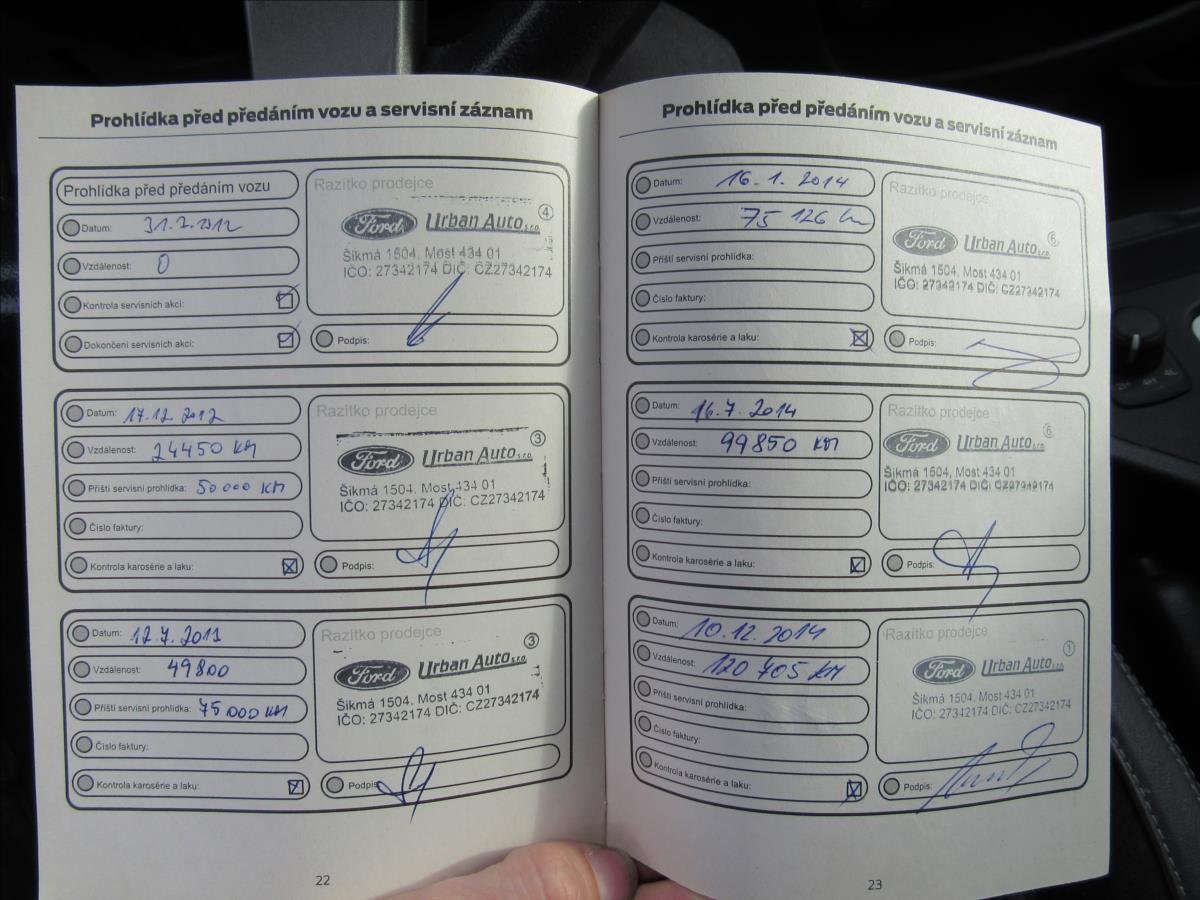 Prohlídka před předáním vozu a servisní záznam
Prohlídka před předáním vozu
Datum:
Vzdálenost: 0
Kontrola servisních akcí:
Dokončení servisních akcí:
Razítko prodejce
4
Ford Urban Auto s.r.o.
Šikmá 1504, Most 434 01
IČO: 27342174 DIČ: CZ27342174
Podpis:
Datum: 17.12 2012
Vzdálenost: 24450 KM
Příští servisní prohlídka: 50000 KM
Číslo faktury:
Kontrola karosérie a laku:
Razítko prodejce
3
Ford Urban Auto s.r.o.
Šikmá 1504, Most 434 01
IČO: 27342174 DIČ: CZ27342174
Podpis:
Datum: 12.7.2013
Vzdálenost: 49800
Příští servisní prohlídka: 75000 KM
Číslo faktury:
Kontrola karosérie a laku:
Razítko prodejce
3
Ford Urban Auto s.r.o.
Šikmá 1504, Most 434 01
IČO: 27342174 DIČ: CZ27342174
Podpis:
22
Prohlídka před předáním vozu a servisní záznam
Datum: 16.1.2014
Vzdálenost: 75 126 km
Příští servisní prohlídka:
Číslo faktury:
Kontrola karosérie a laku:
Razítko prodejce
6
Ford Urban Auto s.r.o.
Šikmá 1504, Most 434 01
IČO: 27342174 DIČ: CZ27342174
Podpis:
Datum: 16.7.2014
Vzdálenost: 99850 KM
Příští servisní prohlídka:
Číslo faktury:
Kontrola karosérie a laku:
Razítko prodejce
6
Ford Urban Auto s.r.o.
Šikmá 1504, Most 434 01
IČO: 27342174 DIČ: CZ27342174
Podpis:
Datum: 10.12.2014
Vzdálenost: 120 705 KM
Příští servisní prohlídka:
Číslo faktury:
Kontrola karosérie a laku:
Razítko prodejce
1
Ford Urban Auto s.r.o.
Šikmá 1504, Most 434 01
IČO: 27342174 DIČ: CZ27342174
Podpis:
23
2H 4H 4L